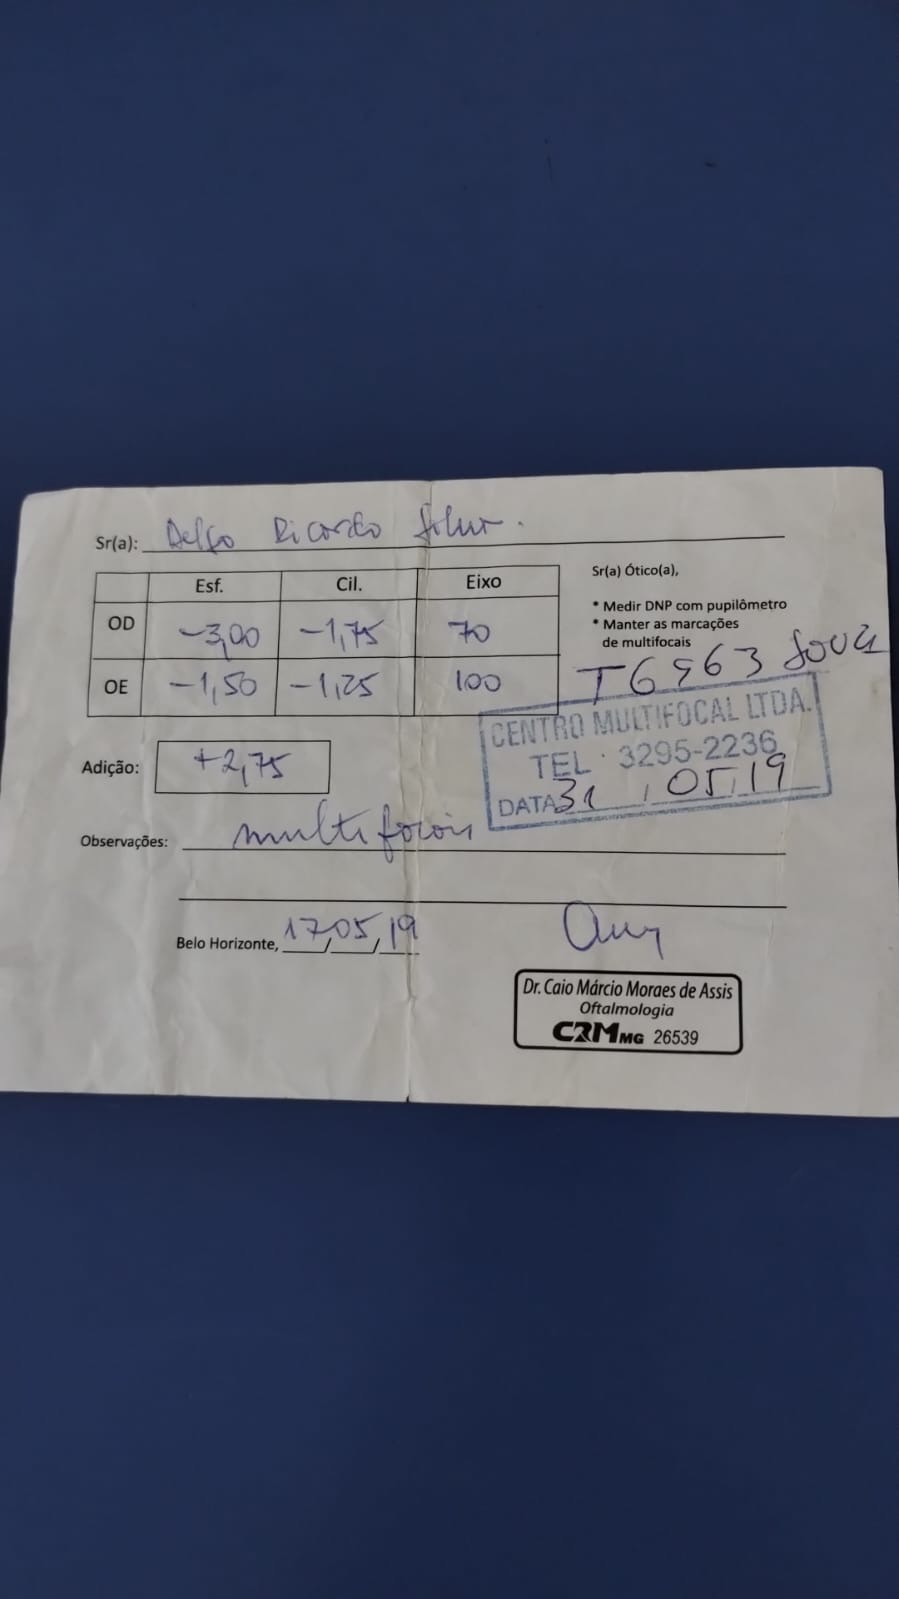 Sr(a): Delfo Ricardo Filho.
Esf. Cil. Eixo
OD -3,00 -1,75 70
OE -1,50 -1,25 100
Adição: +2,75
Sr(a) Ótico(a),
* Medir DNP com pupilômetro
* Manter as marcações
de multifocais
CENTRO MULTIFOCAL LTDA.
TEL 3295-2236
DATA 31,05,19
Observações: multifocais
Belo Horizonte, 17/05/19
Dr. Caio Márcio Moraes de Assis
Oftalmologia
CRMMG 26539